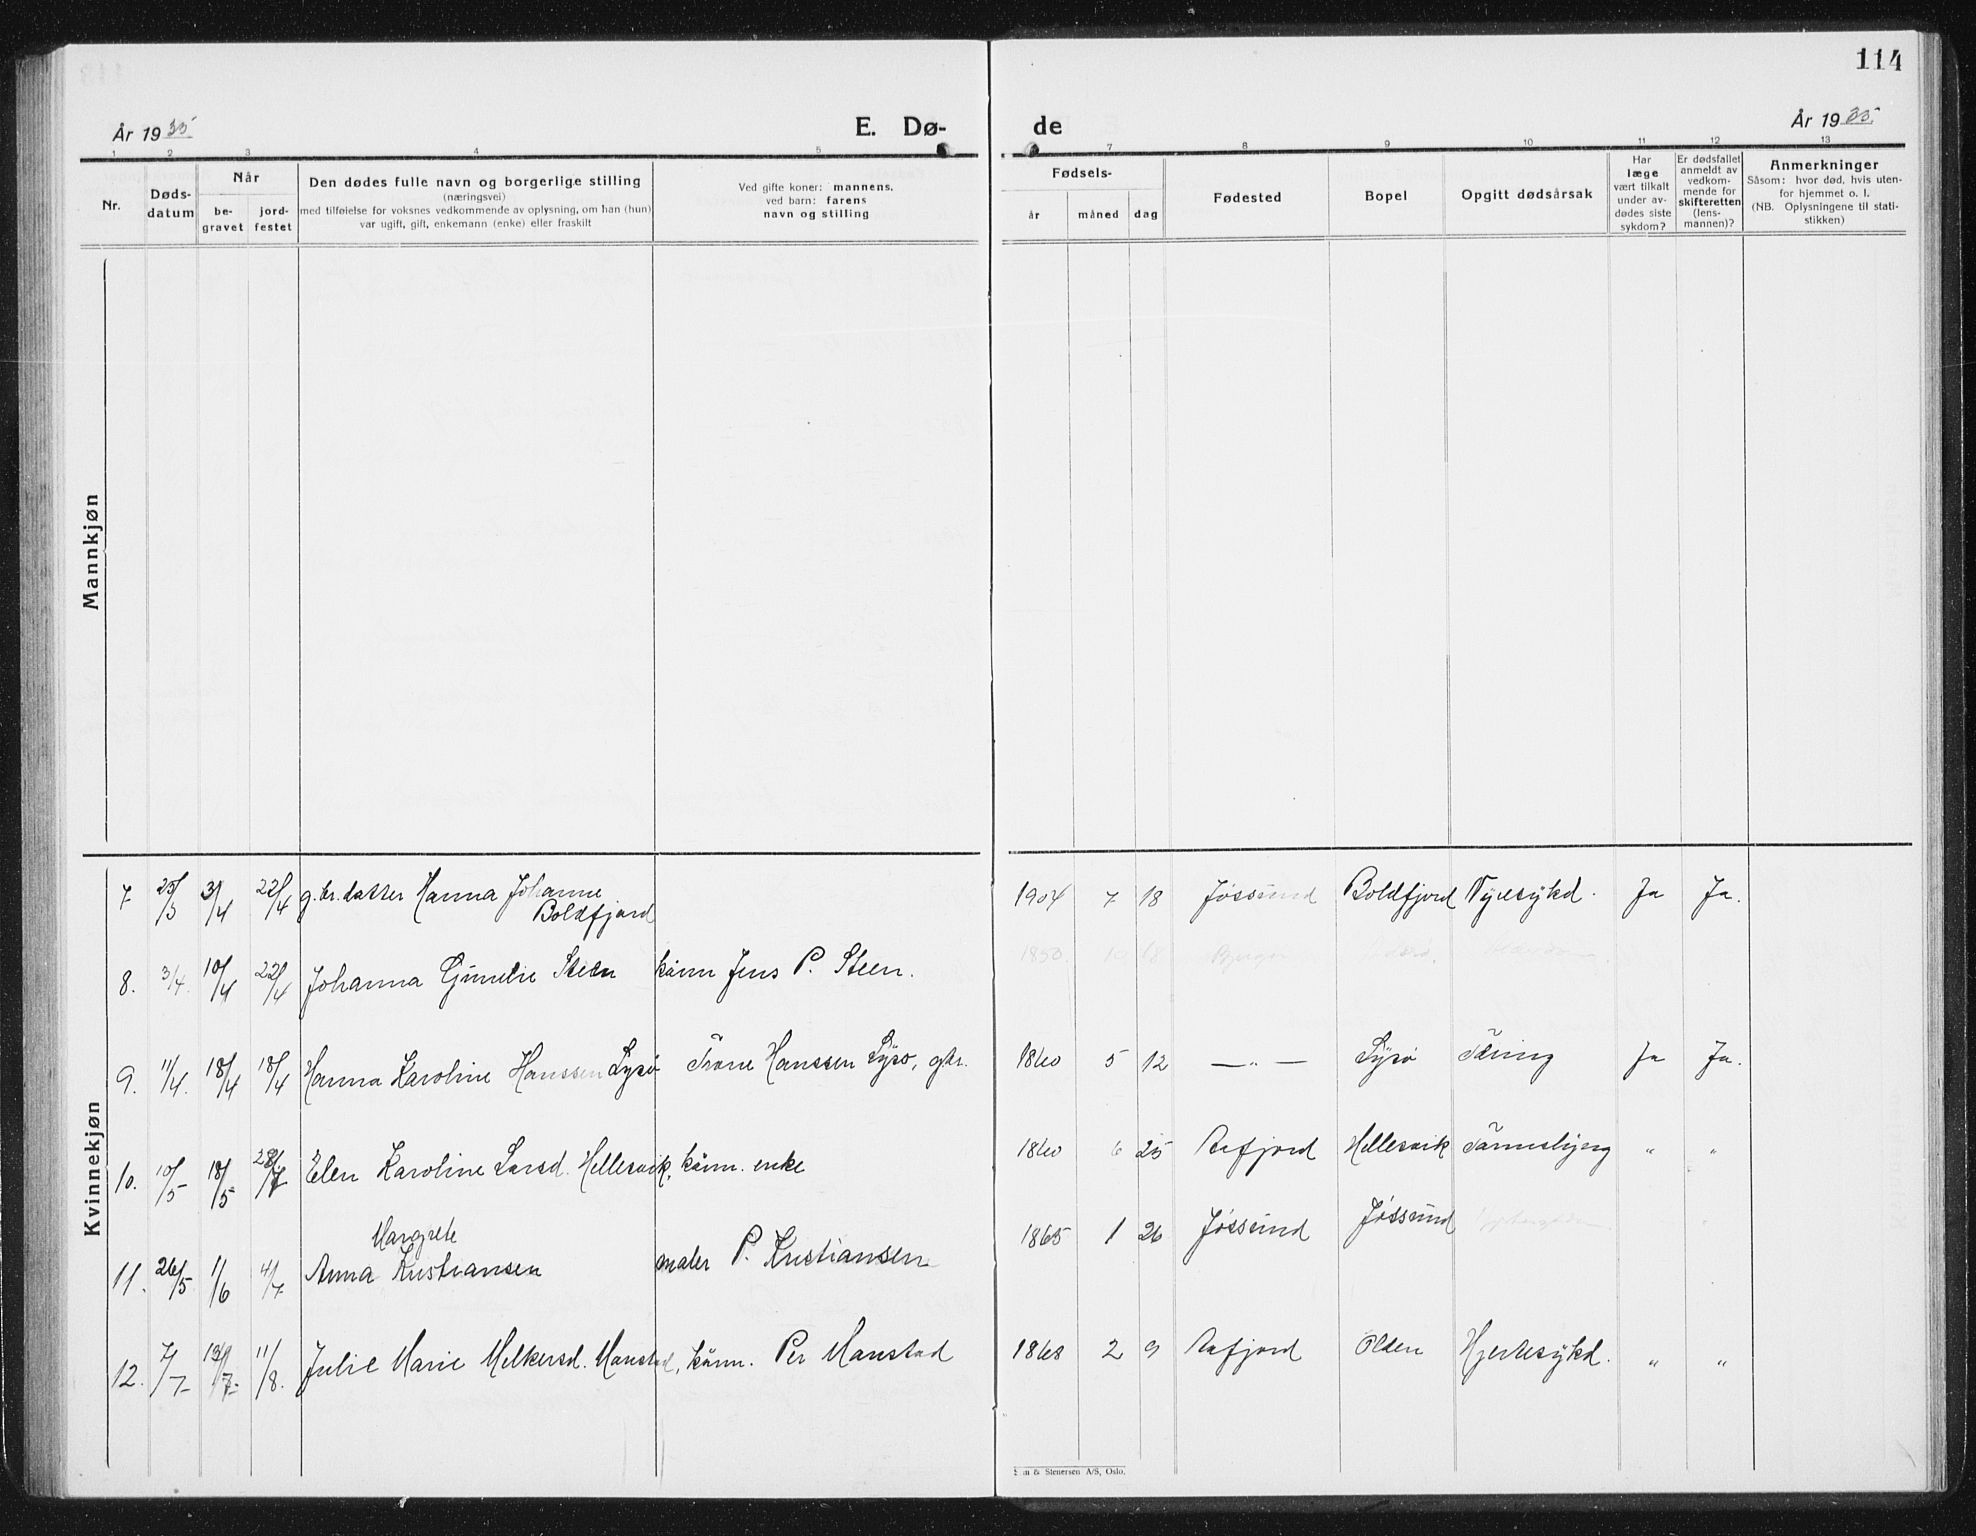 114
År 1935
E. Dø-
de
År 1935
1 2 3 4 5 7 8 9 10 11 12 13
Nr.
Døds-
datum
Når
be-
gravet
jord-
festet
Den dødes fulle navn og borgerlige stilling
(næringsvei)
med tilføielse for voksnes vedkommende av oplysning, om han (hun)
var ugift, gift, enkemann (enke) eller fraskilt
Ved gifte koner: mannens,
ved barn: farens
navn og stilling
Fødsels-
år
måned
dag
Fødested
Bopel
Opgitt dødsårsak
Har
læge
vært tilkalt
under av-
dødes siste
sykdom?
Er dødsfallet
anmeldt av
vedkom-
mende for
skifteretten
(lens-
mannen)?
Anmerkninger
Såsom: hvor død, hvis uten-
for hjemmet o. l.
(NB. Oplysningene til stati-
stikken)
Mannkjøn
Kvinnekjøn
7 25/3 3/4 22/4 g.br.datter Hanna Johanne 1904 7 18 Jøssund Boldfjord Nyresykd. Ja Ja.
Boldfjord
8. 3/4. 10/4 22/4 Johanna Gunelie Steen kårm Jens P. Steen. 1850. 10 18
9. 11/4. 18/4 18/4 Hanna Karoline Hanssen Lysø Trone Hanssen Lysø, gbr. 1860 5 12 —"— Lysø Tæring Ja Ja.
10. 10/5 18/5 28/7 Elen Karoline Larsd. Hellesvik, kårm. enke 1860 6 25 Aafjord Hellesvik " "
Margrete
11. 26/5 1/6 4/7 Anna Kristiansen maler P. Kristiansen 1865 1 26 Jøssund Jøssund
12. 7/7 19/7 11/8. Julie Marie Melkersd. Monstad, kårm. Per Monstad 1868 2 9 Aafjord Olden Hjertesykd. " "
& Stenersen A/S, Oslo.